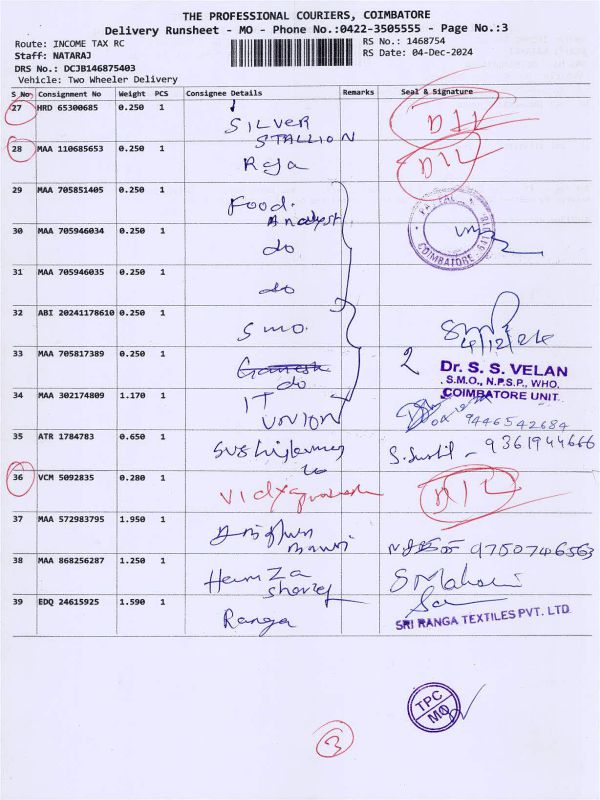 THE PROFESSIONAL COURIERS, COIMBATORE
Delivery Runsheet - MO - Phone No.:0422-3505555 - Page No.:3
Route: INCOME TAX RC
RS No.: 1468754
Staff: NATARAJ
RS Date: 04-Dec-2024
DRS No.: DCJB146875403
Vehicle: Two Wheeler Delivery
S No Consignment No Weight PCS Consignee Details Remarks Seal & Signature
27 HRD 65300685 0.250 1 SILVER
STALLION
28 MAA 110685653 0.250 1 Raja
29 MAA 705851405 0.250 1 Food
Analyst
30 MAA 705946034 0.250 1 do
COIMBATORE
31 MAA 705946035 0.250 1 do
32 ABI 20241178610 0.250 1 SMO
4/12/24
33 MAA 705817389 0.250 1 Ganesh
do
2
Dr. S. S. VELAN
S.M.O., N.P.S.P., WHO.
COIMBATORE UNIT
34 MAA 302174809 1.170 1 IT
UNION
9446542684
35 ATR 1784783 0.650 1
S. Sushil - 9361944666
36 VCM 5092835 0.280 1
37 MAA 572983795 1.950 1
9750746563
38 MAA 868256287 1.250 1 Hamza
Sherief
39 EDQ 24615925 1.590 1 Ranga
SRI RANGA TEXTILES PVT. LTD
TPC
MO
3